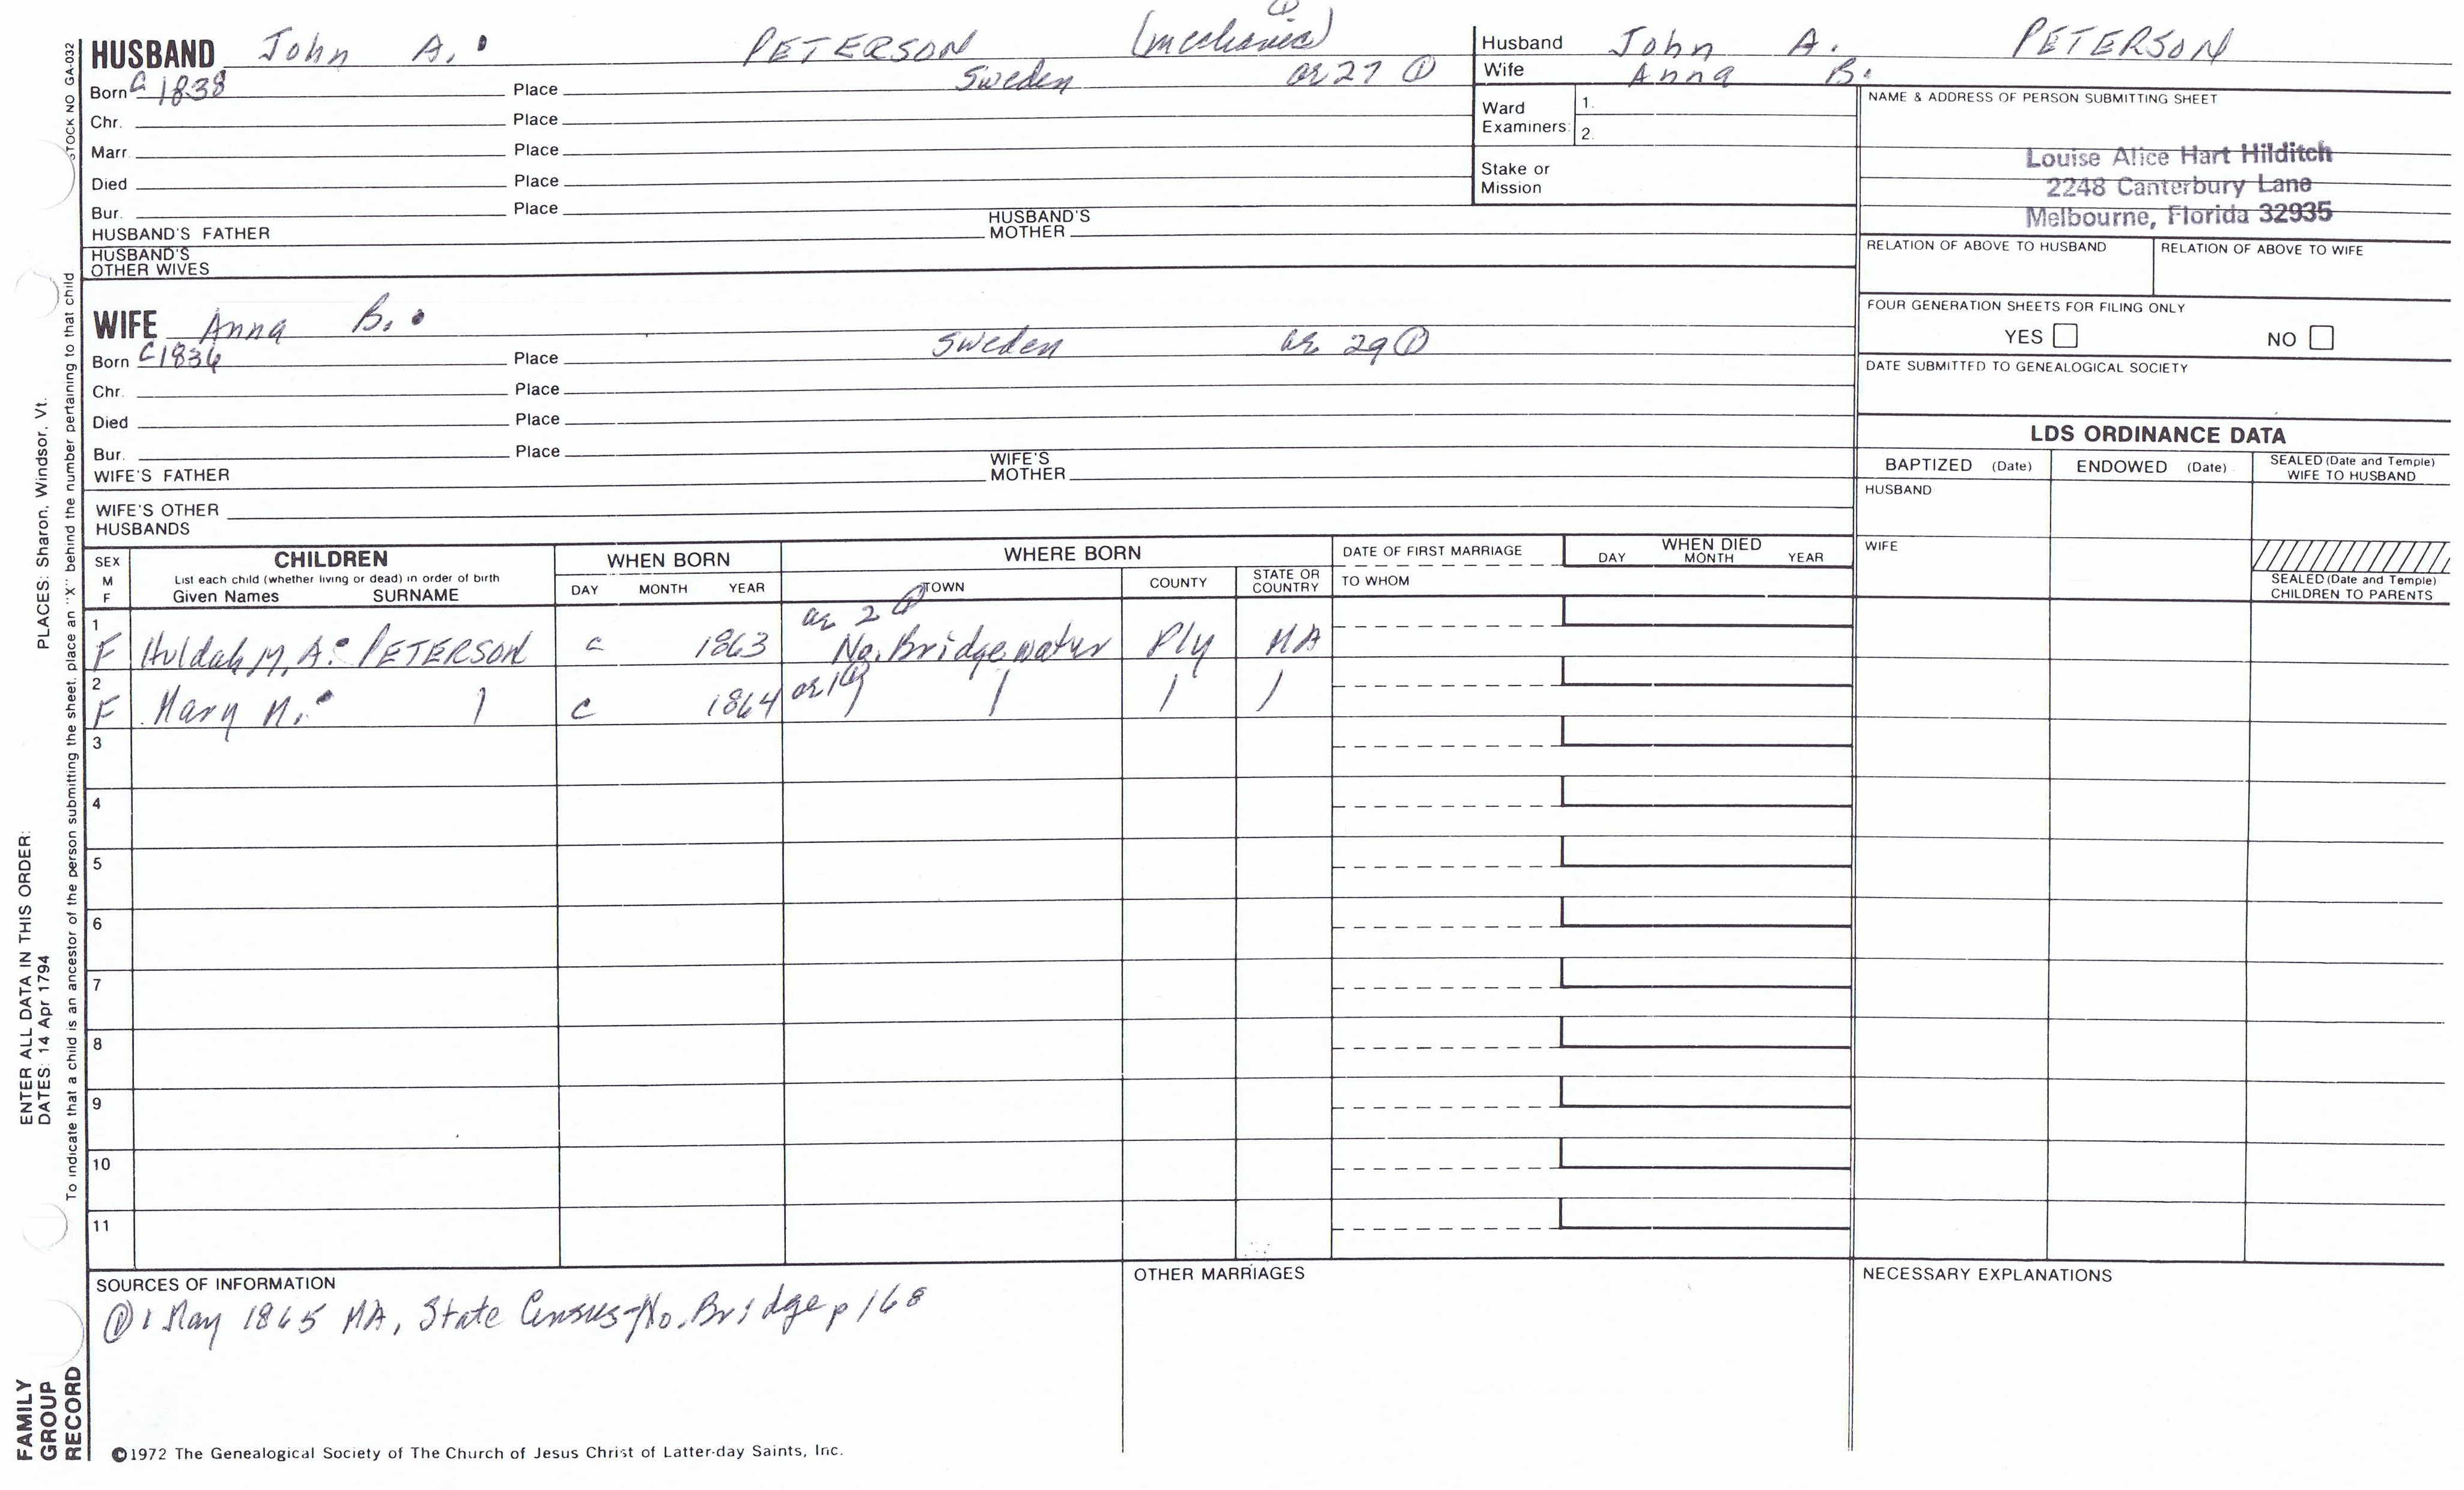 STOCK NO GA-032
HUSBAND John A. PETERSON (mechanic) ①
Born c 1838 Place Sweden ae 27 ①
Chr. Place
Marr. Place
Died Place
Bur. Place
HUSBAND'S FATHER HUSBAND'S MOTHER
HUSBAND'S OTHER WIVES
WIFE Anna B.
Born c1836 Place Sweden ae 29 ①
Chr. Place
Died Place
Bur. Place
WIFE'S FATHER WIFE'S MOTHER
WIFE'S OTHER HUSBANDS
Husband John A. PETERSON
Wife Anna B.
Ward Examiners: 1.
2.
Stake or Mission
NAME & ADDRESS OF PERSON SUBMITTING SHEET
Louise Alice Hart Hilditch
2248 Canterbury Lane
Melbourne, Florida 32935
RELATION OF ABOVE TO HUSBAND RELATION OF ABOVE TO WIFE
FOUR GENERATION SHEETS FOR FILING ONLY
YES NO
DATE SUBMITTED TO GENEALOGICAL SOCIETY
LDS ORDINANCE DATA
BAPTIZED (Date) ENDOWED (Date) SEALED (Date and Temple) WIFE TO HUSBAND
HUSBAND
WIFE
SEALED (Date and Temple) CHILDREN TO PARENTS
SEX M F CHILDREN WHEN BORN WHERE BORN DATE OF FIRST MARRIAGE WHEN DIED
List each child (whether living or dead) in order of birth
Given Names SURNAME DAY MONTH YEAR TOWN COUNTY STATE OR COUNTRY TO WHOM DAY MONTH YEAR
ae 2 ①
1 F Huldah M. A. PETERSON c 1863 No. Bridgewater Ply MA
2 F Mary M. | c 1864 ae 1 ① | | |
3
4
5
6
7
8
9
10
11
SOURCES OF INFORMATION
① 1 May 1865 MA, State Census-No. Bridge p 168
OTHER MARRIAGES
NECESSARY EXPLANATIONS
©1972 The Genealogical Society of The Church of Jesus Christ of Latter-day Saints, Inc.
FAMILY GROUP RECORD
ENTER ALL DATA IN THIS ORDER:
DATES: 14 Apr 1794 PLACES: Sharon, Windsor, Vt.
To indicate that a child is an ancestor of the person submitting the sheet, place an "X" behind the number pertaining to that child